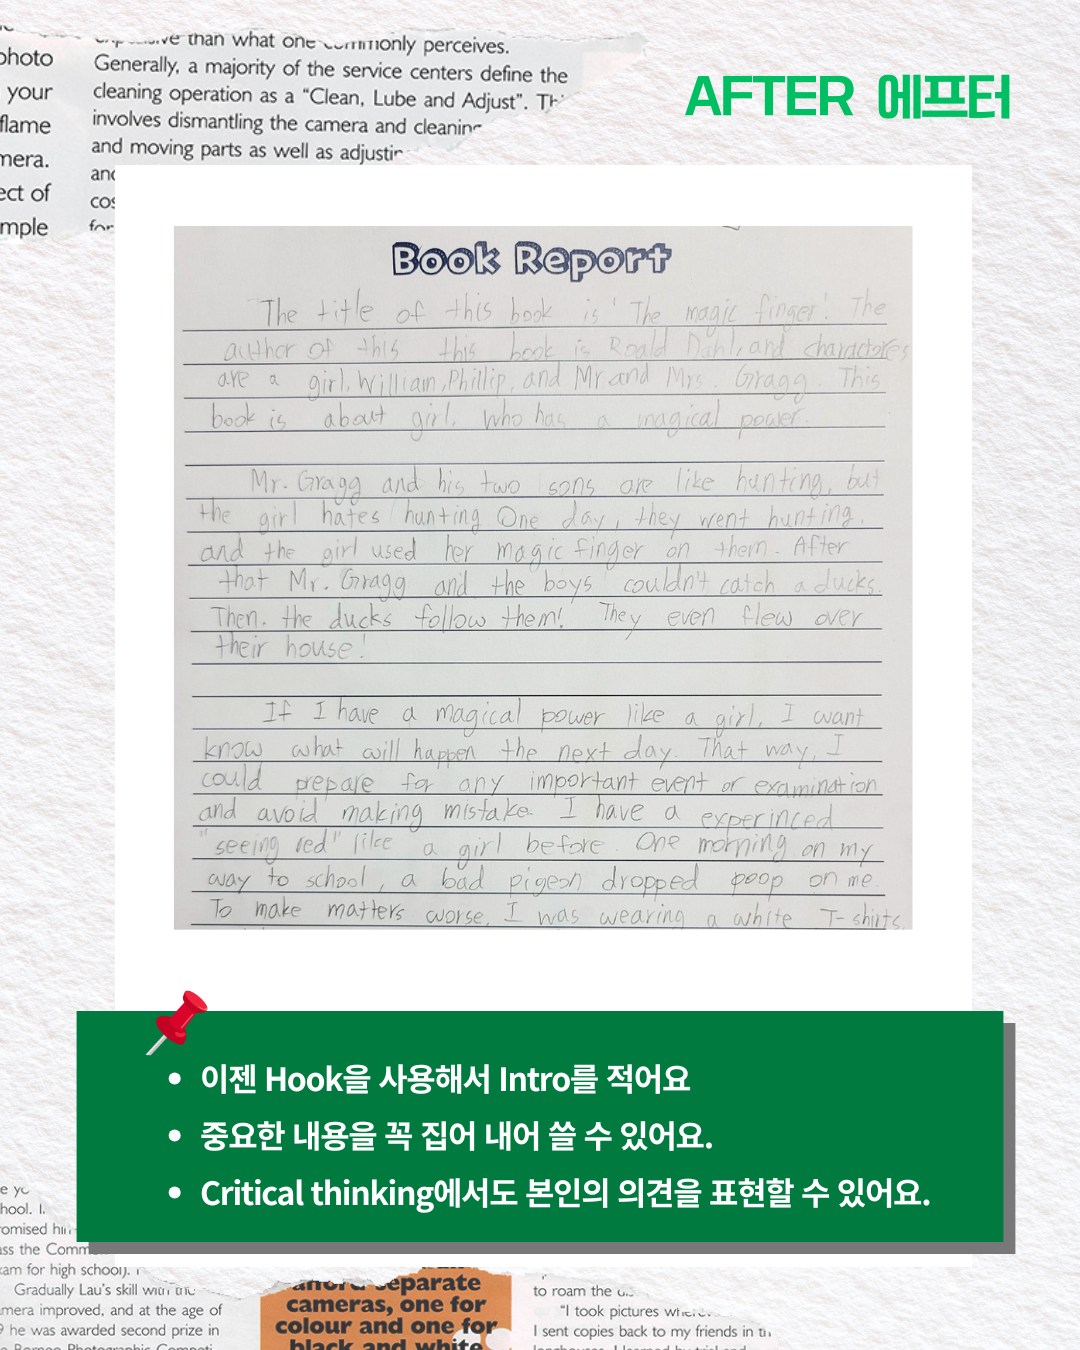 than what one commonly perceives.
Generally, a majority of the service centers define the
cleaning operation as a “Clean, Lube and Adjust”. Th
involves dismantling the camera and cleaning
and moving parts as well as adjustin
and
cos
for
photo
your
flame
mera.
ect of
mple
AFTER 에프터
Book Report
The title of this book is ' The magic finger'. The
author of this this book is Roald Dahl, and charactores
are a girl, William, Phillip, and Mr. and Mrs. Gragg. This
book is about girl. who has a magical power.
Mr. Gragg and his two sons are like hunting, but
the girl hates hunting One day, they went hunting.
and the girl used her magic finger on them. After
that Mr. Gragg and the boys couldn't catch a ducks.
Then. the ducks follow them! They even flew over
their house!
If I have a magical power like a girl, I want
know what will happen the next day. That way, I
could prepare for any important event or examination
and avoid making mistake. I have a experinced
"seeing red" like a girl before. One morning on my
way to school, a bad pigeon dropped poop on me.
To make matters worse, I was wearing a white T-shirts.
• 이젠 Hook을 사용해서 Intro를 적어요
• 중요한 내용을 꼭 집어 내어 쓸 수 있어요.
• Critical thinking에서도 본인의 의견을 표현할 수 있어요.
e yo
hool. I.
omised him
ass the Comm
am for high school). I
Gradually Lau’s skill with the
mera improved, and at the age of
9 he was awarded second prize in
separate
cameras, one for
colour and one for
black and white
to roam the
“I took pictures where
I sent copies back to my friends in th